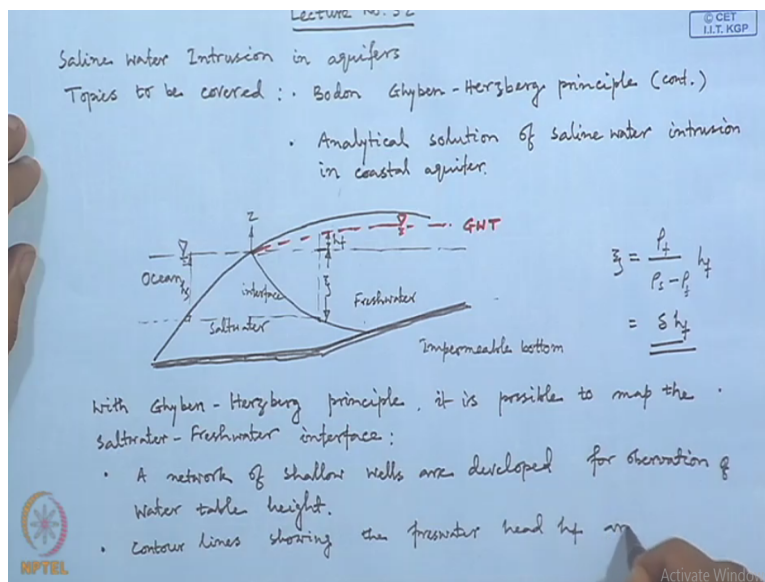 Lecture No. 32
© CET
I.I.T. KGP
Saline water Intrusion in aquifers
Topics to be covered : · Bodon Ghyben-Herzberg principle (cont.)
· Analytical solution of saline water intrusion
in coastal aquifer.
z
GWT
hf
Ocean
hs
ξ
interface
Freshwater
Saltwater
Impermeable bottom
ξ = ρf / ρs - ρf hf
= δ hf
With Ghyben-Herzberg principle, it is possible to map the
saltwater-Freshwater interface:
· A network of shallow wells are developed for obervation of
water table height.
· Contour lines showing the freswater head hf ar
NPTEL
Activate Window